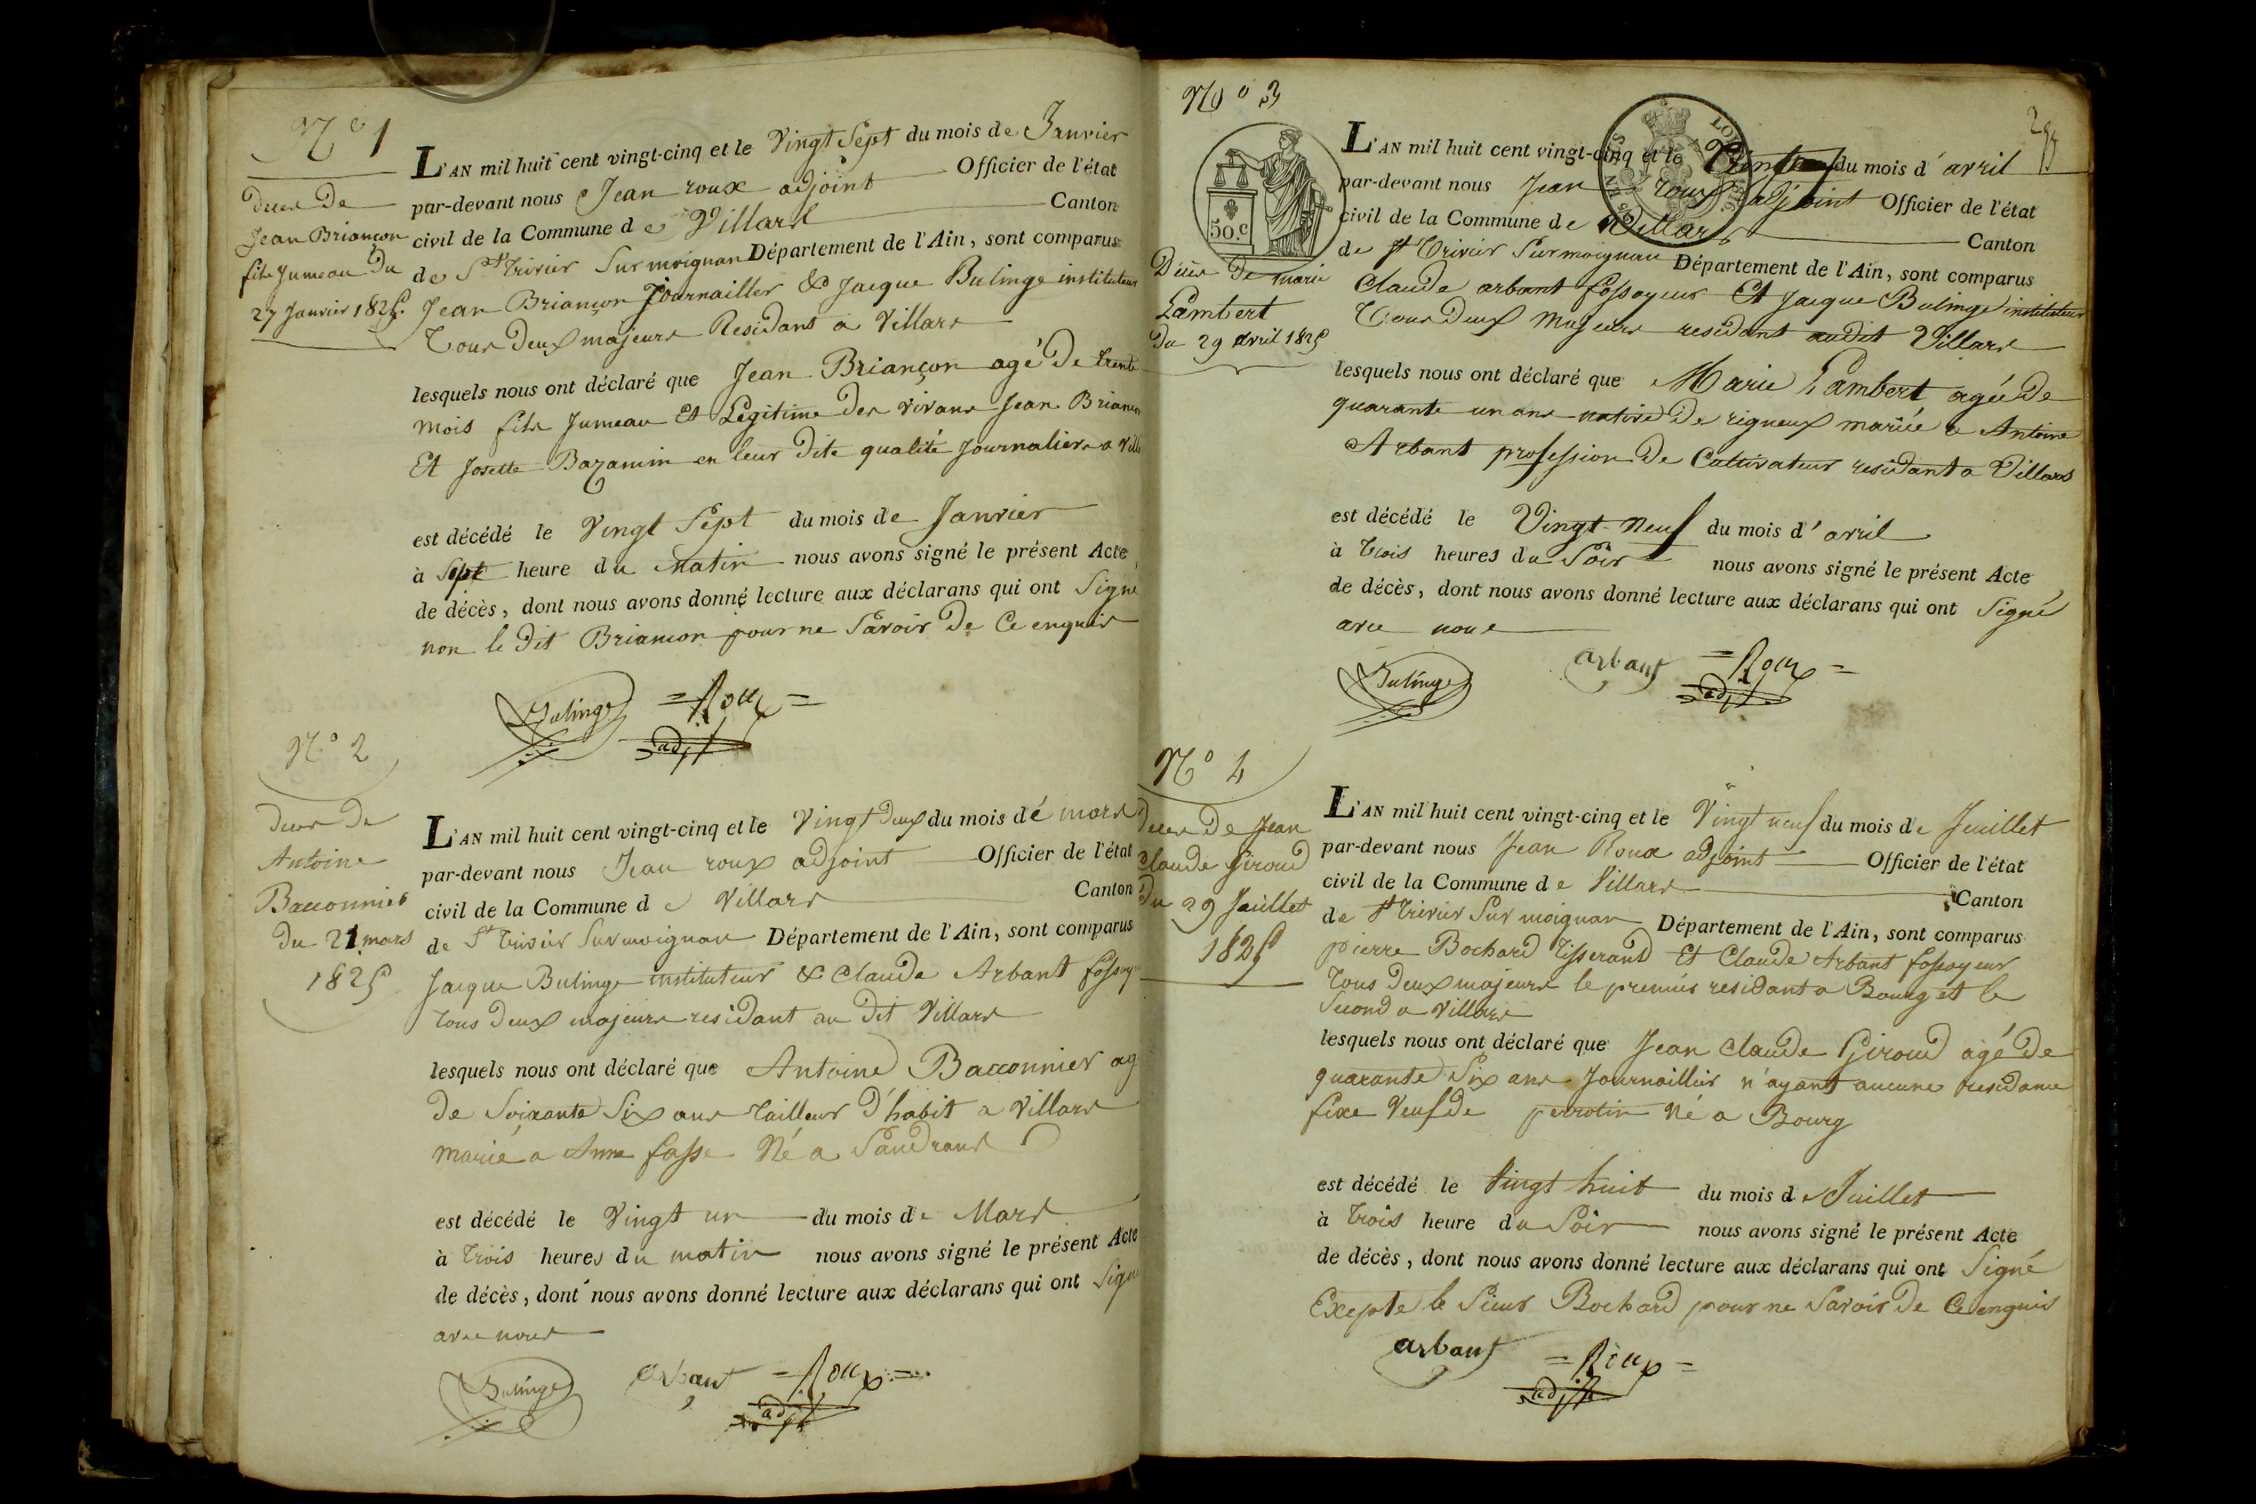 N° 1
Deces De
Jean Briançon
fils Jumeau Du
27 Janvier 1825.
L'AN mil huit cent vingt-cinq et le Vingt Sept du mois de Janvier
par-devant nous Jean roux adjoint Officier de l'état
civil de la Commune de Villars Canton
de St Trivier Sur moignan Département de l'Ain, sont comparus
Jean Briançon Journailler & Jacque Bulinge instituteur
Tous Deux majeurs Residans a Villars
lesquels nous ont déclaré que Jean Briançon agé De trente
mois fils Jumeau Et Legitime des vivans Jean Briançon
Et Josette Bazanin en leur Dite qualité Journaliers a Vill
est décédé le Vingt Sept du mois de Janvier
à Sept heure du Matin nous avons signé le présent Acte
de décès, dont nous avons donné lecture aux déclarans qui ont Signé
non le Dit Briancon pour ne Savoir De Ce enquis
Bulinge = Roux =
adjt
N° 2
deces De
Antoine
Bacconnier
Du 21 mars
1825
L'AN mil huit cent vingt-cinq et le Vingt Deux du mois dé mars
par-devant nous Jean roux adjoint Officier de l'état
civil de la Commune de Villars Canton
de St Trivier Sur moignan Département de l'Ain, sont comparus
Jacque Bulinge instituteur & Claude Arbant fossoy
Tous Deux majeurs residant au Dit Villars
lesquels nous ont déclaré que Antoine Bacconnier ag
De Soixante Six ans Tailleur D'habit a Villars
marié a Anne fasse Né a Sandrans
est décédé le Vingt un du mois de Mars
à Trois heures du matin nous avons signé le présent Acte
de décès, dont nous avons donné lecture aux déclarans qui ont Signé
avec nous
Bulinge arbant = Roux =
adjt
N° 3
50.c
Décès De marie
Lambert
Du 29 avril 1825
L'AN mil huit cent vingt-cinq et le Trente du mois d'avril
par-devant nous Jean roux adjoint Officier de l'état
civil de la Commune de Villars Canton
de St Trivier Sur moignan Département de l'Ain, sont comparus
Claude arbant fossoyeur Et Jacque Bulinge instituteur
Tous Deux Majeurs residant audit Villars
lesquels nous ont déclaré que Marie Lambert agée De
quarante un ans native De rigneux mariée a Antoine
Arbant profession De Cultivateur residant a Villars
est décédé le Vingt Neuf du mois d'avril
à Trois heures du Soir nous avons signé le présent Acte
de décès, dont nous avons donné lecture aux déclarans qui ont Signé
avec nous
Bulinge arbant = Roux =
adjt
N° 4
deces De Jean
Claude Giroud
Du 29 Juillet
1825
L'AN mil huit cent vingt-cinq et le Vingt neuf du mois de Jeuillet
par-devant nous Jean Roux adjoint Officier de l'état
civil de la Commune de Villars Canton
de St Trivier Sur moignan Département de l'Ain, sont comparus
pierre Bochard Tisserand Et Claude Arbant fossoyeur
Tous Deux majeurs le premier residant a Bourg et le
Second a Villars
lesquels nous ont déclaré que Jean Claude Giroud agé De
quarante Six ans Journaillier n'ayant aucune residance
fixe Veuf de perrotin Né a Bourg
est décédé le Vingt huit du mois de Juillet
à Trois heure du Soir nous avons signé le présent Acte
de décès, dont nous avons donné lecture aux déclarans qui ont Signé
Exepte le Sieur Bochard pour ne Savoir De Ce enquis
arbant = Roux =
adjt